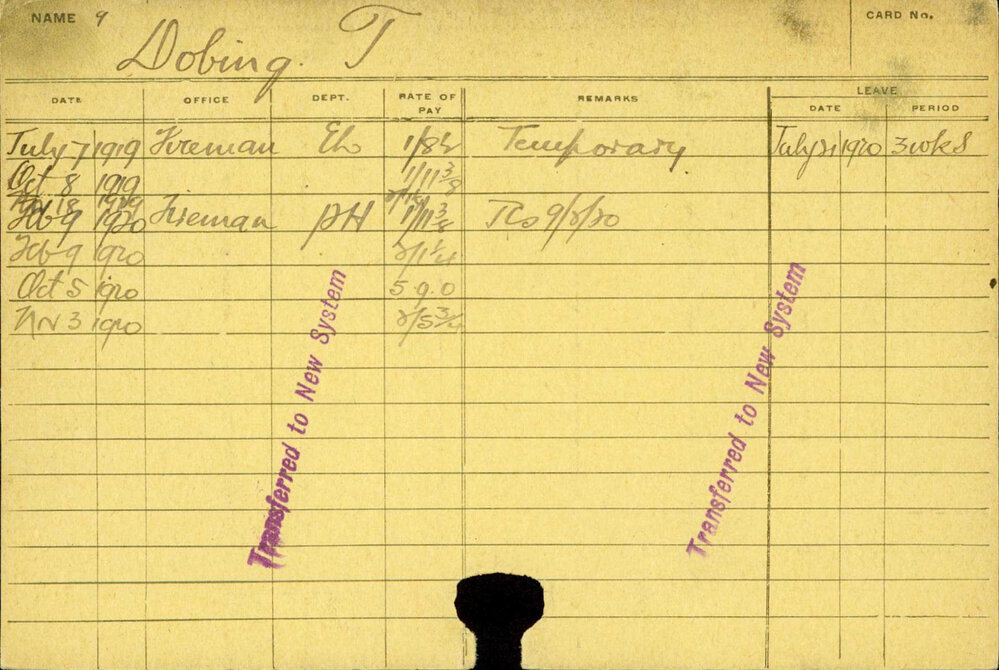 NAME 9 Dobing. T CARD No.
DATE OFFICE DEPT. RATE OF PAY REMARKS LEAVE
DATE PERIOD
July 7 1919 Fireman Eh 1/8½ Temporary July 21 1920 3 wks
Oct 8 1919 1/11 3/8
Nov 18 1919
Feb 9 1920 Fireman PH 1/11 3/8 TCo 9/2/20
Feb 9 1920 2/1 1/4
Oct 5 1920 5 9.0
Nov 3 1920 2/5 3/4
Transferred to New System
Transferred to New System